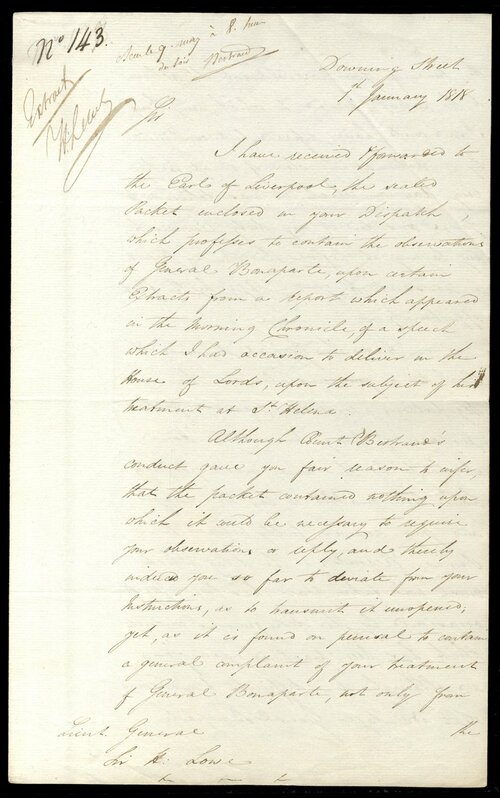 No 143.
Recu le 9 may à 8. heur
du soir Bertrand
Extract
H: Lowe
Downing Street
1st January 1818
Sir
I have received & forwarded to
the Earl of Liverpool, the sealed
Packet enclosed in your Dispatch,
which professes to contain the observations
of General Bonaparte, upon certain
Extracts from a report which appeared
in the Morning Chronicle, of a speech
which I had occasion to deliver in the
House of Lords, upon the subject of his
treatment at St Helena.
Although Count Bertrand's
conduct gave you fair reason to infer,
that the packet contained nothing upon
which it could be necessary to require
your observations or reply, and thereby
induced you so far to deviate from your
Instructions, as to transmit it unopened;
yet, as it is found on perusal to contain
a general complaint of your treatment
of General Bonaparte, not only from
the
Lieut. General
Sir H: Lowe